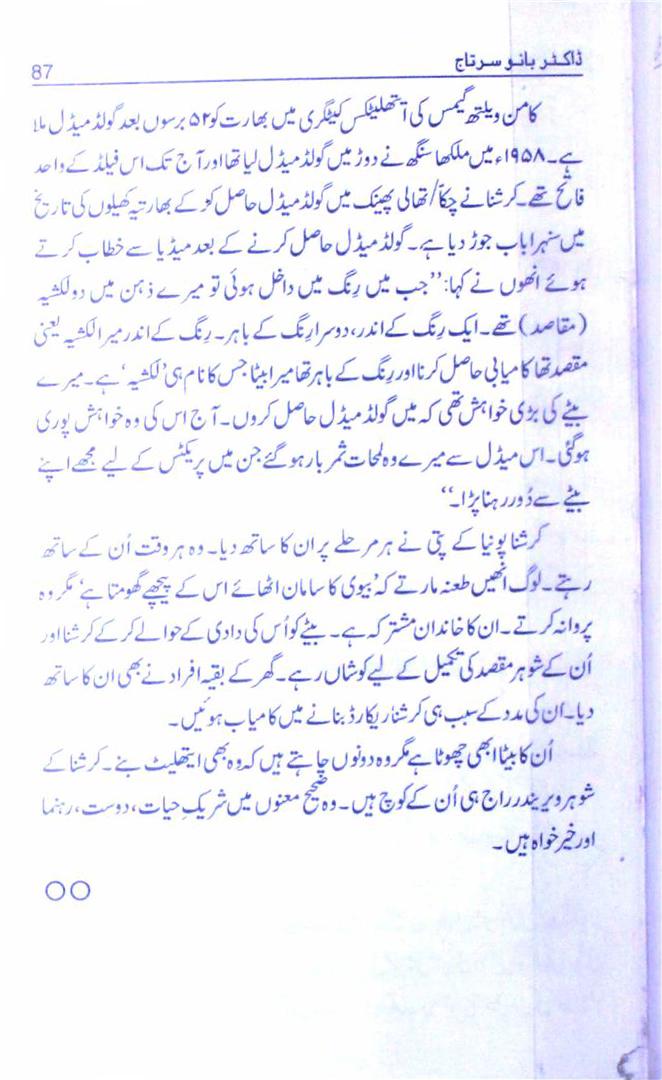 ڈاکٹر بانو سرتاج
87
کامن ویلتھ گیمس کی ایتھلیٹکس کیٹگری میں بھارت کو ۵۲ برسوں بعد گولڈ میڈل ملا
ہے۔ ۱۹۵۸ء میں ملکھا سنگھ نے دوڑ میں گولڈ میڈل لیا تھا اور آج تک اس فیلڈ کے واحد
فاتح تھے۔ کرشنا نے چکّا/تھالی پھینک میں گولڈ میڈل حاصل کر کے بھارتیہ کھیلوں کی تاریخ
میں سنہرا باب جوڑ دیا ہے۔ گولڈ میڈل حاصل کرنے کے بعد میڈیا سے خطاب کرتے
ہوئے انھوں نے کہا: ’’جب میں رِنگ میں داخل ہوئی تو میرے ذہن میں دو لکشیہ
(مقاصد) تھے۔ ایک رِنگ کے اندر، دوسرا رِنگ کے باہر۔ رِنگ کے اندر میرا لکشیہ یعنی
مقصد تھا کامیابی حاصل کرنا اور رِنگ کے باہر تھا میرا بیٹا جس کا نام ہی ’لکشیہ‘ ہے۔ میرے
بیٹے کی بڑی خواہش تھی کہ میں گولڈ میڈل حاصل کروں۔ آج اس کی وہ خواہش پوری
ہوگئی۔ اس میڈل سے میرے وہ لمحات ثمر بار ہو گئے جن میں پریکٹس کے لیے مجھے اپنے
بیٹے سے دُور رہنا پڑا۔‘‘
کرشنا پونیا کے پتی نے ہر مرحلے پر ان کا ساتھ دیا۔ وہ ہر وقت اُن کے ساتھ
رہتے۔ لوگ انھیں طعنہ مارتے کہ ’بیوی کا سامان اٹھائے اس کے پیچھے گھومتا ہے‘ مگر وہ
پروا نہ کرتے۔ ان کا خاندان مشترکہ ہے۔ بیٹے کو اُس کی دادی کے حوالے کر کے کرشنا اور
اُن کے شوہر مقصد کی تکمیل کے لیے کوشاں رہے۔ گھر کے بقیہ افراد نے بھی ان کا ساتھ
دیا۔ ان کی مدد کے سبب ہی کرشنا ریکارڈ بنانے میں کامیاب ہوئیں۔
اُن کا بیٹا ابھی چھوٹا ہے مگر وہ دونوں چاہتے ہیں کہ وہ بھی ایتھلیٹ بنے۔ کرشنا کے
شوہر ویریندر راج ہی اُن کے کوچ ہیں۔ وہ صحیح معنوں میں شریکِ حیات، دوست، رہنما
اور خیر خواہ ہیں۔